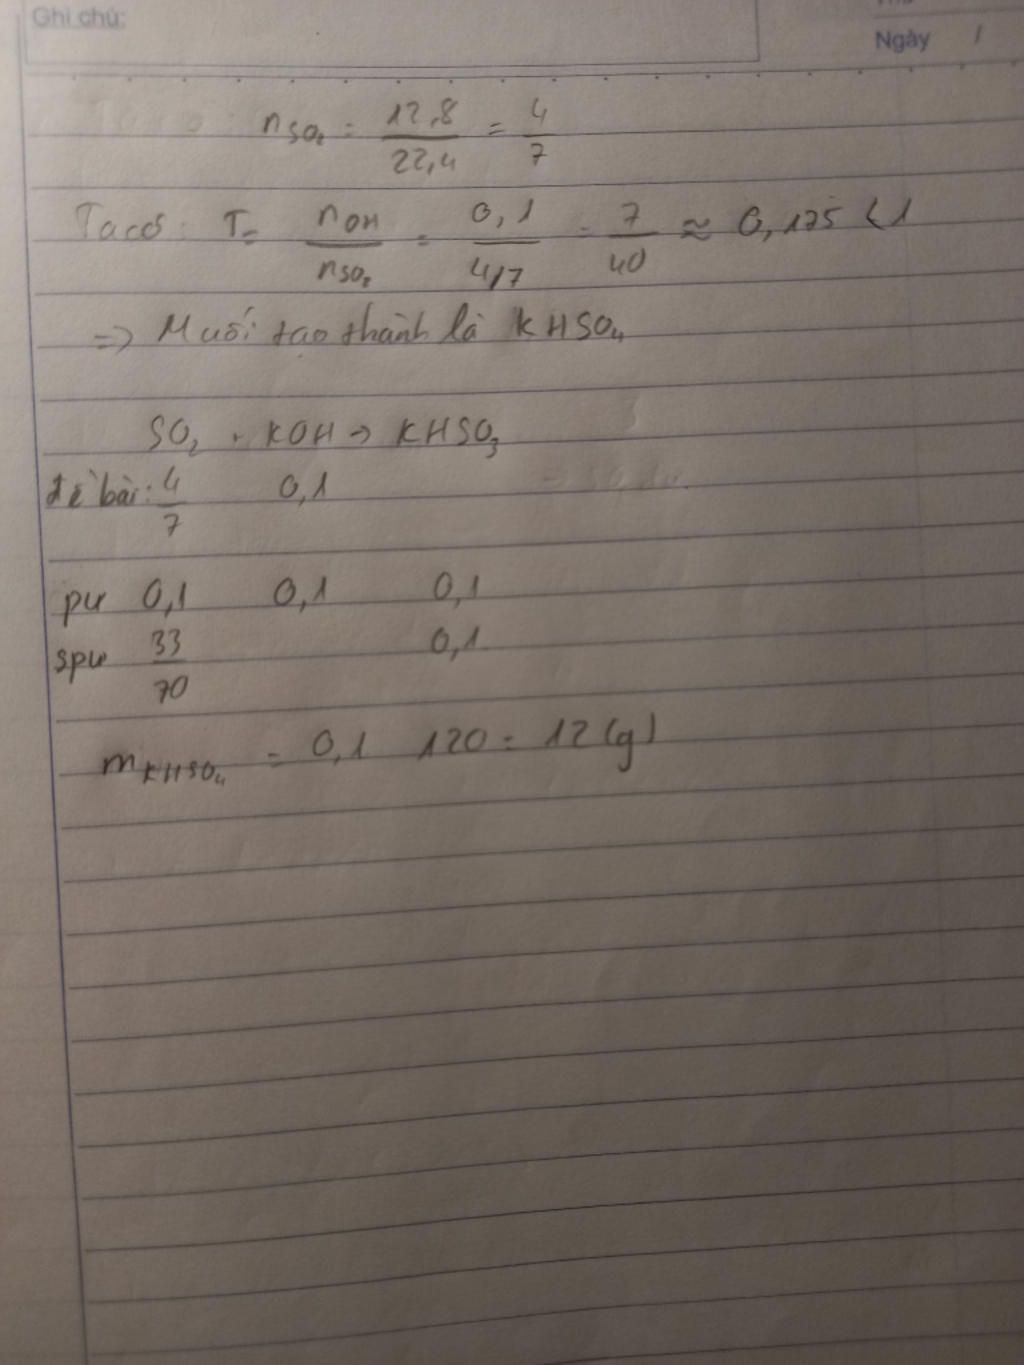 Ghi chú:
Ngày /
nSO₂ = 12,8/22,4 = 4/7
Ta có: T = nOH/nSO₂ = 0,1/4/7 = 7/40 ≈ 0,175 < 1
=> Muối tạo thành là KHSO₄
SO₂ + KOH → KHSO₃
đề bài: 4/7 0,1
pư 0,1 0,1 0,1
spư 33/70 0,1
mKHSO₄ = 0,1 120 = 12 (g)